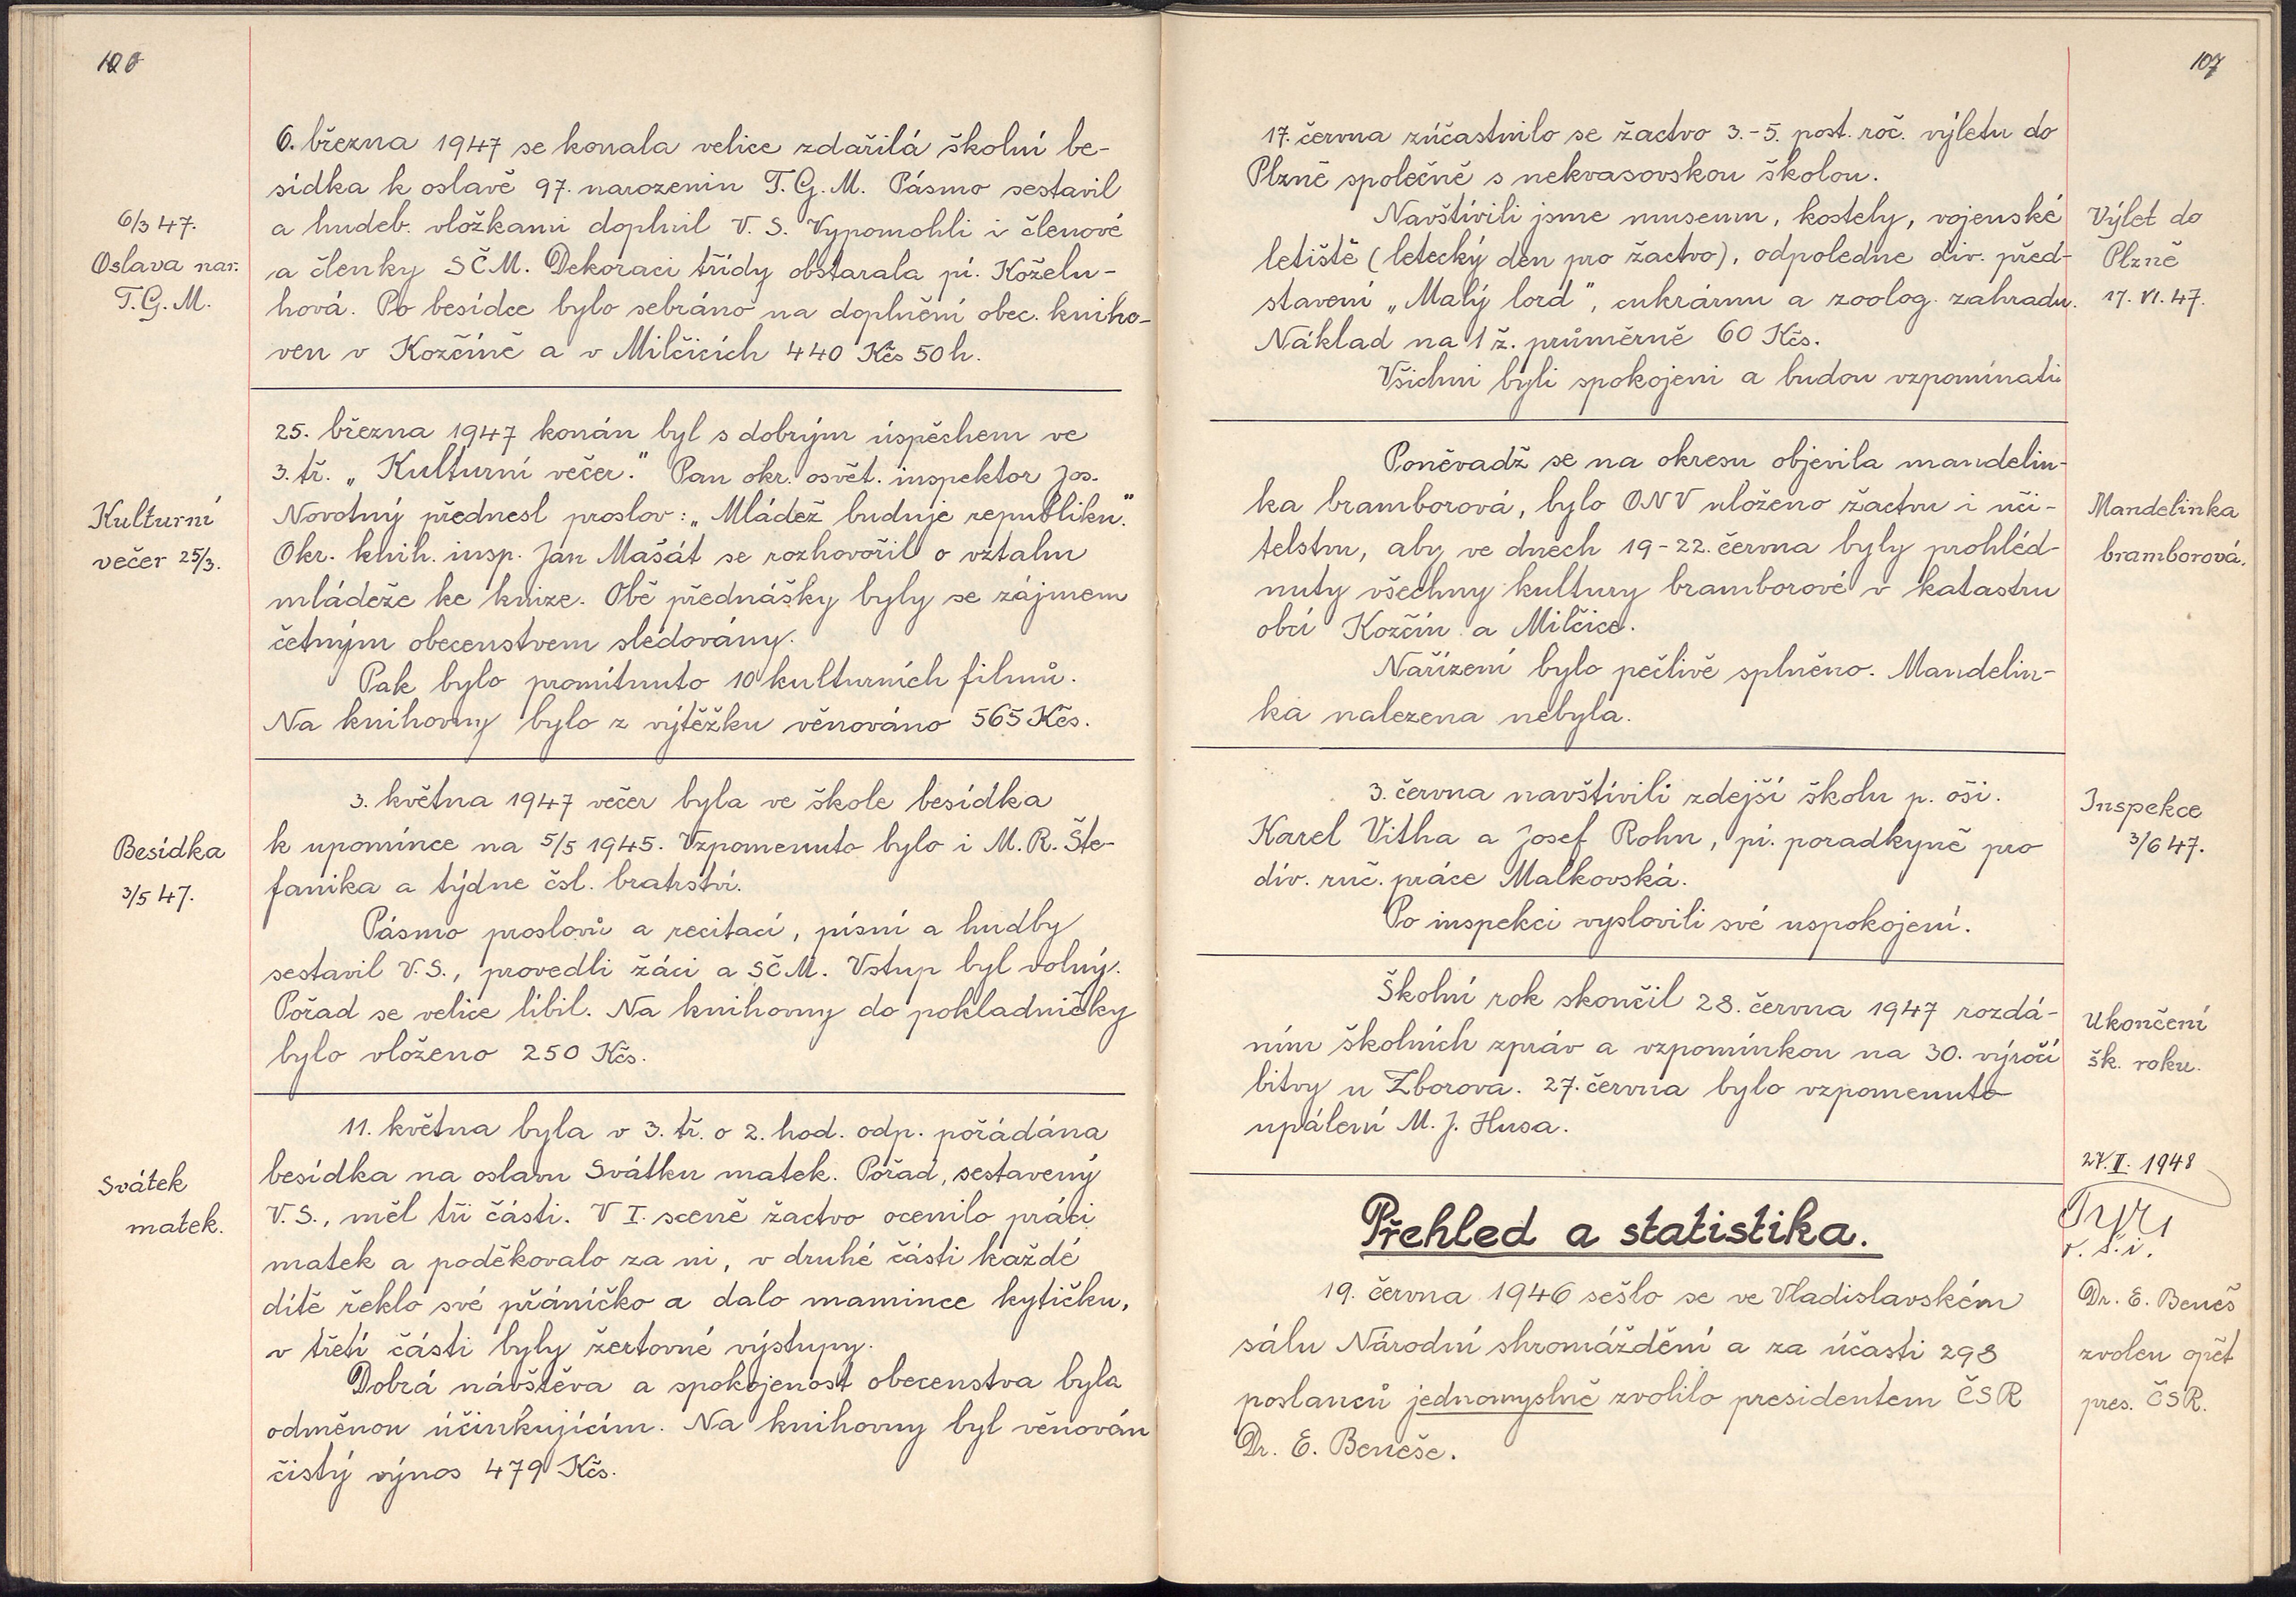 6/3 47.
Oslava nar.
T.G.M.
6. března 1947 se konala velice zdařilá školní be-
sídka k oslavě 97. narozenin T.G.M. Pásmo sestavil
a hudeb. vložkami doplnil V. S. Vypomohli i členové
a členky SČM. Dekoraci třídy obstarala pí. Koželu-
hová. Po besídce bylo sebráno na doplnění obec. kniho-
ven v Kozčíně a v Milčicích 440 Kčs 50 h.
Kulturní
večer 25/3.
25. března 1947 konán byl s dobrým úspěchem ve
3. tř. „Kulturní večer." Pan okr. osvět. inspektor Jos.
Novotný přednesl proslov: „Mládež buduje republiku."
Okr. knih. insp. Jan Mašát se rozhovořil o vztahu
mládeže ke knize. Obě přednášky byly se zájmem
četným obecenstvem sledovány.
Pak bylo promítnuto 10 kulturních filmů.
Na knihovny bylo z výtěžku věnováno 565 Kčs.
Besídka
3/5 47.
3. května 1947 večer byla ve škole besídka
k upomínce na 5/5 1945. Vzpomenuto bylo i M. R. Šte-
fanika a týdne čsl. bratrství.
Pásmo proslovů a recitací, písní a hudby
sestavil V.S., provedli žáci a SČM. Vstup byl volný.
Pořad se velice líbil. Na knihovny do pokladničky
bylo vloženo 250 Kčs.
Svátek
matek.
11. května byla v 3. tř. o 2. hod. odp. pořádána
besídka na oslavu Svátku matek. Pořad, sestavený
V. S., měl tři části. V I. sceně žactvo ocenilo práci
matek a poděkovalo za ni, v druhé části každé
dítě řeklo své přáníčko a dalo mamince kytičku,
v třetí části byly žertovné výstupy.
Dobrá návštěva a spokojenost obecenstva byla
odměnou účinkujícím. Na knihovny byl věnován
čistý výnos 479 Kčs.
107
17. června zúčastnilo se žactvo 3.-5. post. roč. výletu do
Plzně společně s nekvasovskou školou.
Navštívili jsme museum, kostely, vojenské
letiště (letecký den pro žactvo), odpoledne div. před-
stavení „Malý lord", cukrárnu a zoolog. zahradu.
Náklad na 1 ž. průměrně 60 Kčs.
Všichni byli spokojeni a budou vzpomínati
Výlet do
Plzně
17. VI. 47.
Poněvadž se na okresu objevila mandelin-
ka bramborová, bylo ONV uloženo žactvu i uči-
telstvu, aby ve dnech 19-22. června byly prohléd-
nuty všechny kultury bramborové v katastru
obcí Kozčín a Milčice.
Nařízení bylo pečlivě splněno. Mandelin-
ka nalezena nebyla.
Mandelinka
bramborová.
3. června navštívili zdejší školu p. oši.
Karel Vitha a Josef Rohn, pí. poradkyně pro
dív. ruč. práce Malkovská.
Po inspekci vyslovili své uspokojení.
Inspekce
3/6 47.
Školní rok skončil 28. června 1947 rozdá-
ním školních zpráv a vzpomínkou na 30. výročí
bitvy u Zborova. 27. června bylo vzpomenuto
upálení M. J. Husa.
Ukončení
šk. roku.
27. II. 1948
Přehled a statistika.
19. června 1946 sešlo se ve Vladislavském
sálu Národní shromáždění a za účasti 298
poslanců jednomyslně zvolilo presidentem ČSR
Dr. E. Beneše.
Dr. E. Beneš
zvolen opět
pres. ČSR.